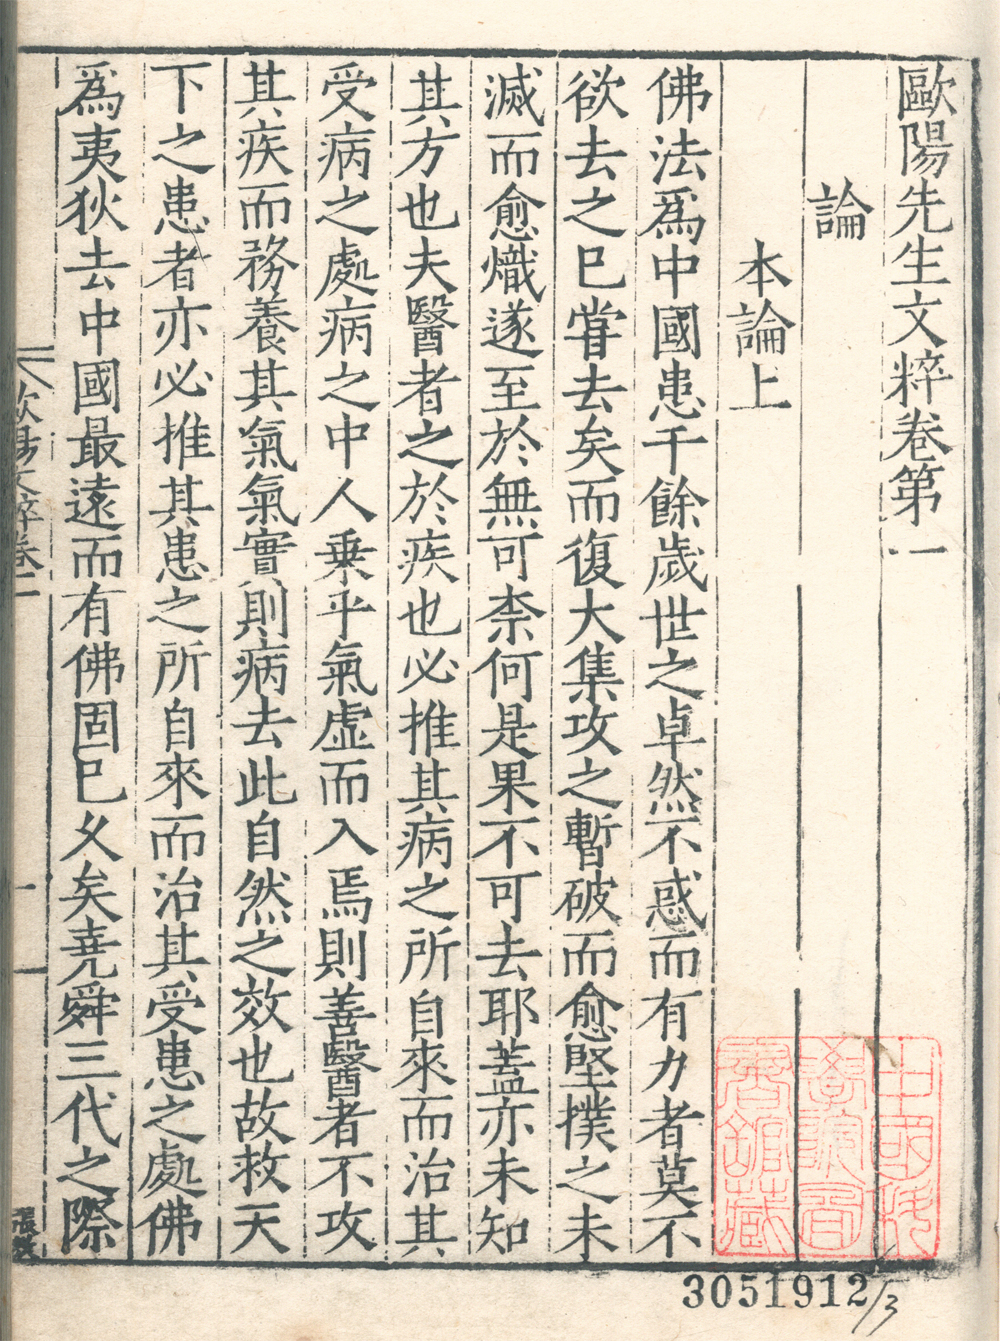 歐陽先生文粹卷第一
論
本論上
佛法爲中國患千餘歲世之卓然不惑而有力者莫不
欲去之巳甞去矣而復大集攻之暫破而愈堅撲之未
滅而愈熾遂至於無可柰何是果不可去耶蓋亦未知
其方也夫醫者之於疾也必推其病之所自來而治其
受病之處病之中人乗乎氣虛而入焉則善醫者不攻
其疾而務養其氣氣實則病去此自然之效也故救天
下之患者亦必推其患之所自來而治其受患之處佛
爲夷狄去中國最遠而有佛固巳乆矣堯舜三代之際
中國科
學院圖
書館藏
3051912
/3